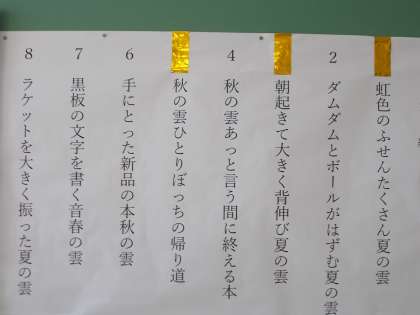 虹色のふせんたくさん夏の雲
2 ダムダムとボールがはずむ夏の雲
朝起きて大きく背伸び夏の雲
4 秋の雲あっと言う間に終える本
秋の雲ひとりぼっちの帰り道
6 手にとった新品の本秋の雲
7 黒板の文字を書く音春の雲
8 ラケットを大きく振った夏の雲